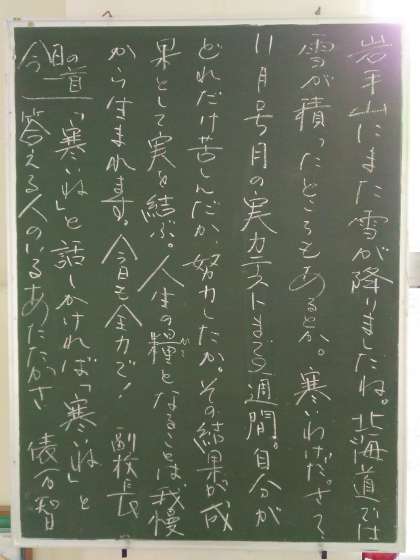 岩手山にまた雪が降りましたね。北海道では
雪が積ったところもあるとか。寒いわけだ。さて
11月の実力テストまで2週間。自分が
どれだけ苦しんだか、努力したか。その結果が成
果として実を結ぶ。人生の糧(かて)となることは我慢
から生まれます。今日も全力で! 副校長
今日の一首
「寒いね」と話しかければ「寒いね」と
答える人のいるあたたかさ 俵万智